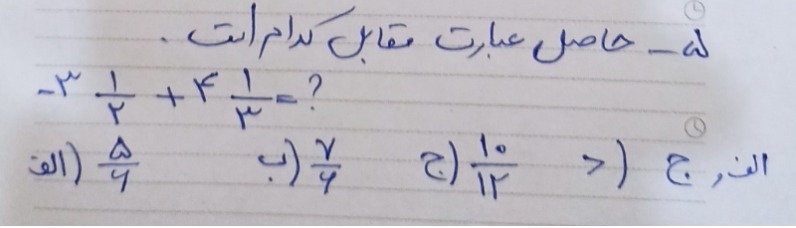 ۵- حاصل عبارت مقابل کدام است.
-۳ ۱/۲ + ۴ ۱/۳ = ?
الف) ۵/۶ ب) ۷/۶ ج) ۱۰/۱۲ د) الف و ج